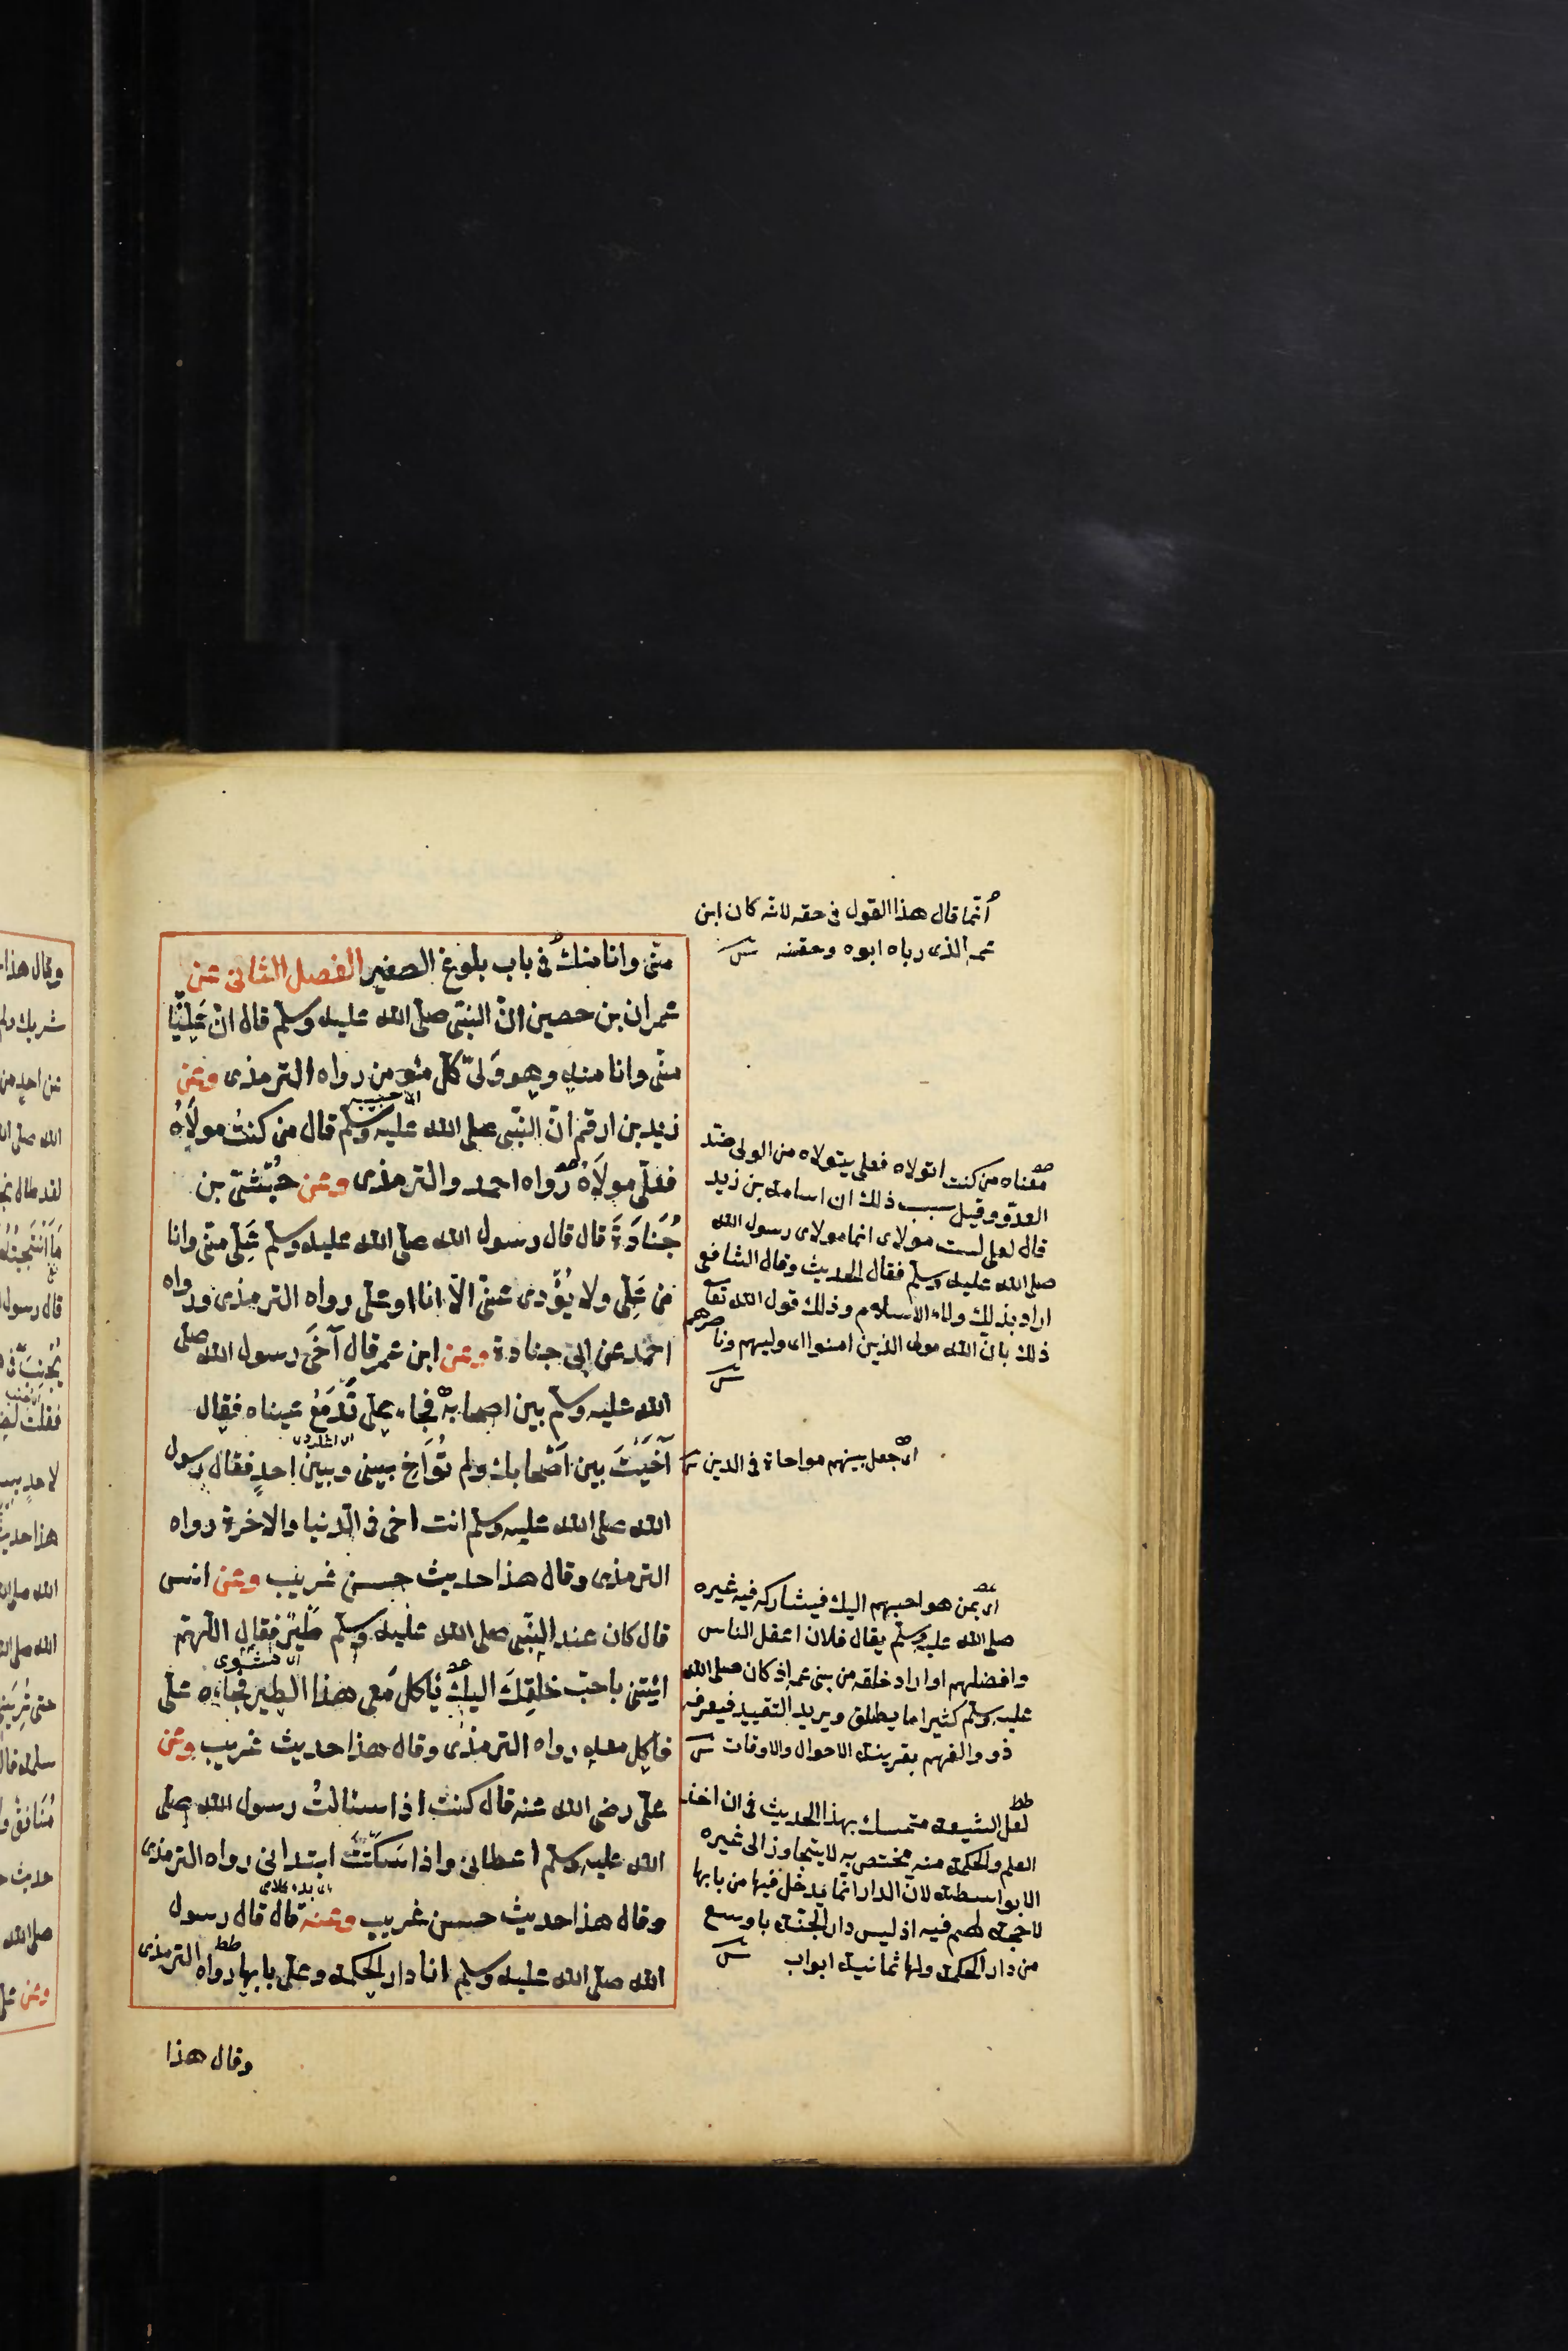 منّى وانا منك فى باب بلوغ الصغير الفصل الثانى عن
عمران بن حصين انّ النبّى صلى الله عليه وسلم قال انّ عَلِيًّا
منّى وانا منه وهو وَلىّ كلّ مئومن رواه الترمذى وعن
زيد بن ارقم انّ النبّى صلى الله عليه وسلم قال من كنتُ مولَاهُ
فعلّى مولَاهُ رواه احمد والترمذى وعن حُبْشىّ بن
جُنَادَةَ قال قال رسول الله صلى الله عليه وسلم عَلِى منّى وانا
من عَلِى ولا يُؤَدى عنّى الّا انا او على رواه الترمذى ورواه
احمد عن ابى جنادة وعن ابن عمر قال آخَى رسول الله صلى
الله عليه وسلم بين اصحابه فجاء على تَدمَعُ عيناه فقال
آخَيْتَ بين اَصْحابك ولم تُوَاخِ بينى وبين احدٍ فقال رسول
الله صلى الله عليه وسلم انت اخى فى الدّنيا والاخرة رواه
الترمذى وقال هذا حديث حسن غريب وعن انس
قال كان عند النّبى صلى الله عليه وسلم طَيْرٌ فقال اللّهمّ
ائيتنى باحبّ خلقِكَ اليك يَاكل مَعى هذا الطير فجاءه علىّ
فاكل معه رواه الترمذى وقال هذا حديث غريب وعن
على رضى الله عنه قال كنت اذا سئالتُ رسول الله صلى
الله عليه وسلم اعطانى واذا سَكَتّتُ ابتدانى رواه الترمذى
وقال هذا حديث حسن غريب وعنه قال قال رسول
الله صلى الله عليه وسلم انا دار الحكمة وعلى بابها رواه الترمذى
وقال هذا
انّما قال هذا القول فى حقه لانّه كان ابن
عمه الذى رباه ابوه وحقنه
معناه من كنت اتولاه فعلى يتولاه من الولى ضدّ
العدوّ وقيل سبب ذلك ان اسامة بن زيد
قال لعلى لست مولاى انما مولاى رسول الله
صلى الله عليه وسلم فقال الحديث وقال الشافعى
اراد بذلك ولاء الاسلام وذلك قول الله تعا
ذلك بانّ الله مولى الذين امنوا اى وليهم وناصرهم
اى جعل بينهم مواخاة فى الدين
اى بمن هو احبهم اليك فيشاركه فيه غيره
صلى الله عليه وسلم يقال فلان اعقل الناس
وافضلهم او اراد خلقه من بنى عمه اذ كان صلى الله
عليه وسلم كثيرا ما يطلق ويريد التقييد فيعرفه
ذو والفهم بقرينة الاحوال والاوقات
لعل الشيعة متمسك بهذا الحديث فى ان اخذ
العلم والحكمة منه مختص به لا يتجاوز الى غيره
الا بواسطته لانّ الدار انّما يدخل فيها من بابها
لا حجة لهم فيه اذ ليس دار الجنة باوسع
من دار الحكمة ولها ثمانية ابواب